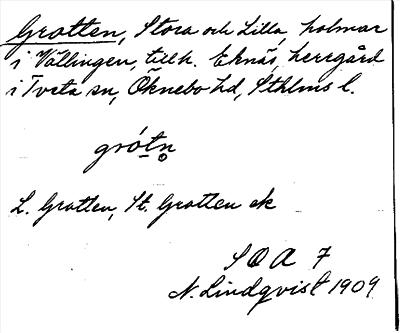 Grotten, Stora och Lilla, holmar
i Vällingen, till h. Eknäs, herrgård
i Tveta sn, Öknebo hd, Sthlms l.
grótn̥
L. Grotten, St. Grotten ek
S O A 7
N. Lindqvist 1909